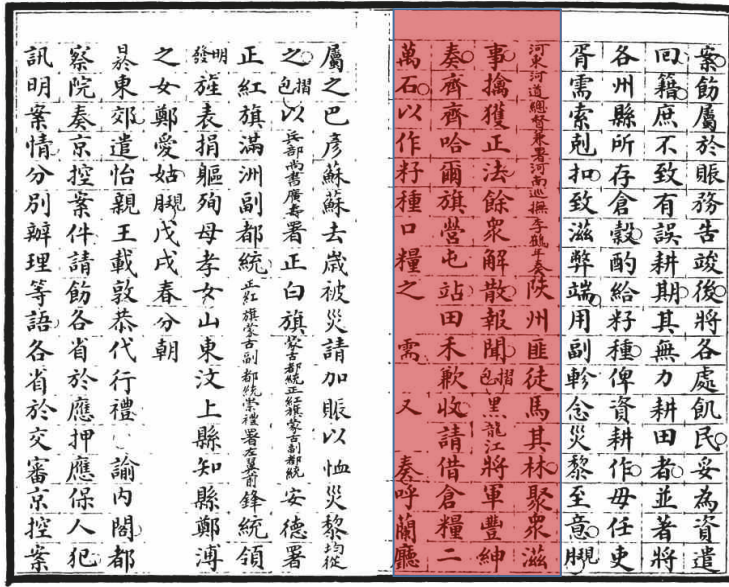 案飭屬於賑務告竣後將各處飢民妥為資遣
回籍庶不致有誤耕期其無力耕田者並著將
各州縣所存倉穀酌給籽種俾資耕作毋任吏
胥需索剋扣致滋弊端用副軫念災黎至意現月
河東河道總督兼署河南巡撫李鶴年奏陜州匪徒馬其林聚眾滋
事擒獲正法餘眾解散報聞摺包黑龍江將軍豐紳
奏齊齊哈爾旗營屯站田禾歉收請借倉糧二
萬石以作籽種口糧之需又奏呼蘭廳
屬之巴彥蘇蘇去歲被災請加賑以恤災黎均從
之摺包以兵部尚書廣壽署正白旗蒙古都統正紅旗蒙古副都統安德署
正紅旗滿洲副都統正紅旗蒙古副都統崇禮署左翼前鋒統領
明發旌表捐軀殉母孝女山東汶上縣知縣鄭溥
之女鄭愛姑現月戊戌春分朝
日於東郊遣怡親王載敦恭代行禮諭內閣都
察院奏京控案件請飭各省於應押應保人犯
訊明案情分別辦理等語各省於交審京控案